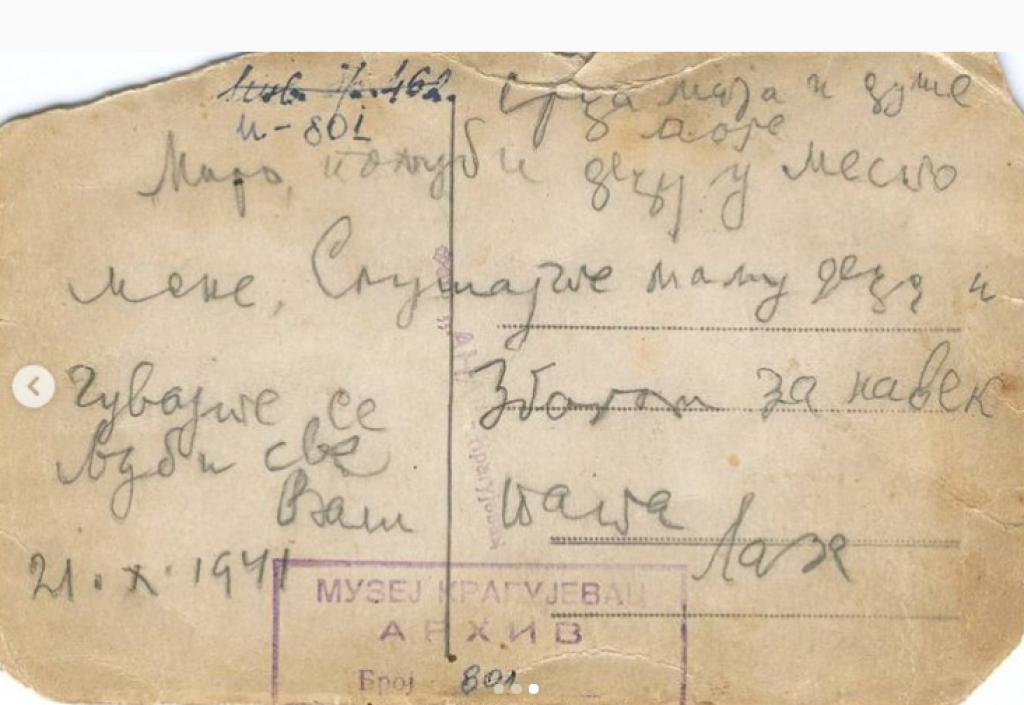 И-801
Срца моја и душе
моје
Маро, пољуби децу у место
мене, Слушајте маму децо и
Чувајте се Збогом за навек
љуби све
Ваш тата
Лаза
21.X.1941
МУЗЕЈ КРАГУЈЕВАЦ
АРХИВ
Број 801